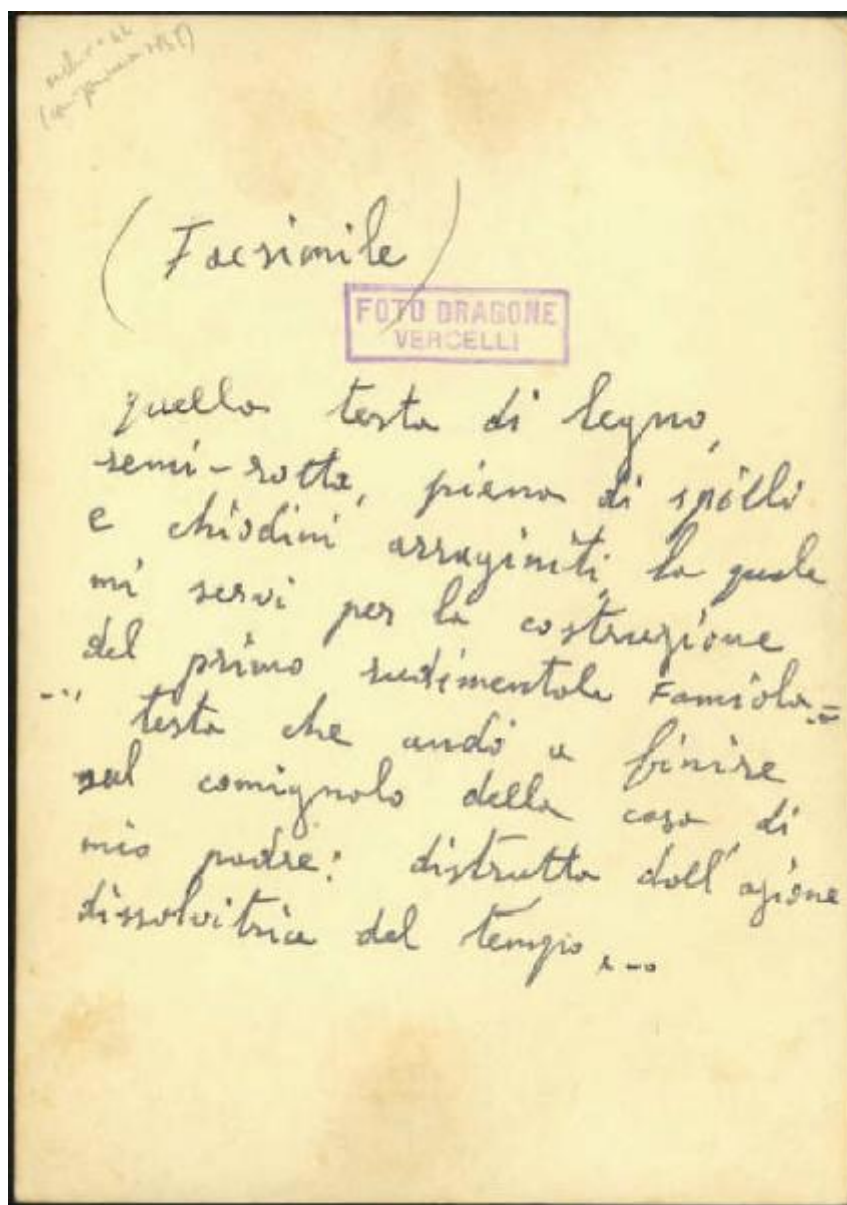 (Facsimile)
FOTO DRAGONE
VERCELLI
quella testa di legno,
semi-rotta, piena di spilli
e chiodini arraginiti, la quale
mi servì per la costruzione
del primo rudimentale Famiola
testa che andò a finire
sul comignolo della casa di
mio padre: distrutta dall'azione
dissolvitrice del tempo....